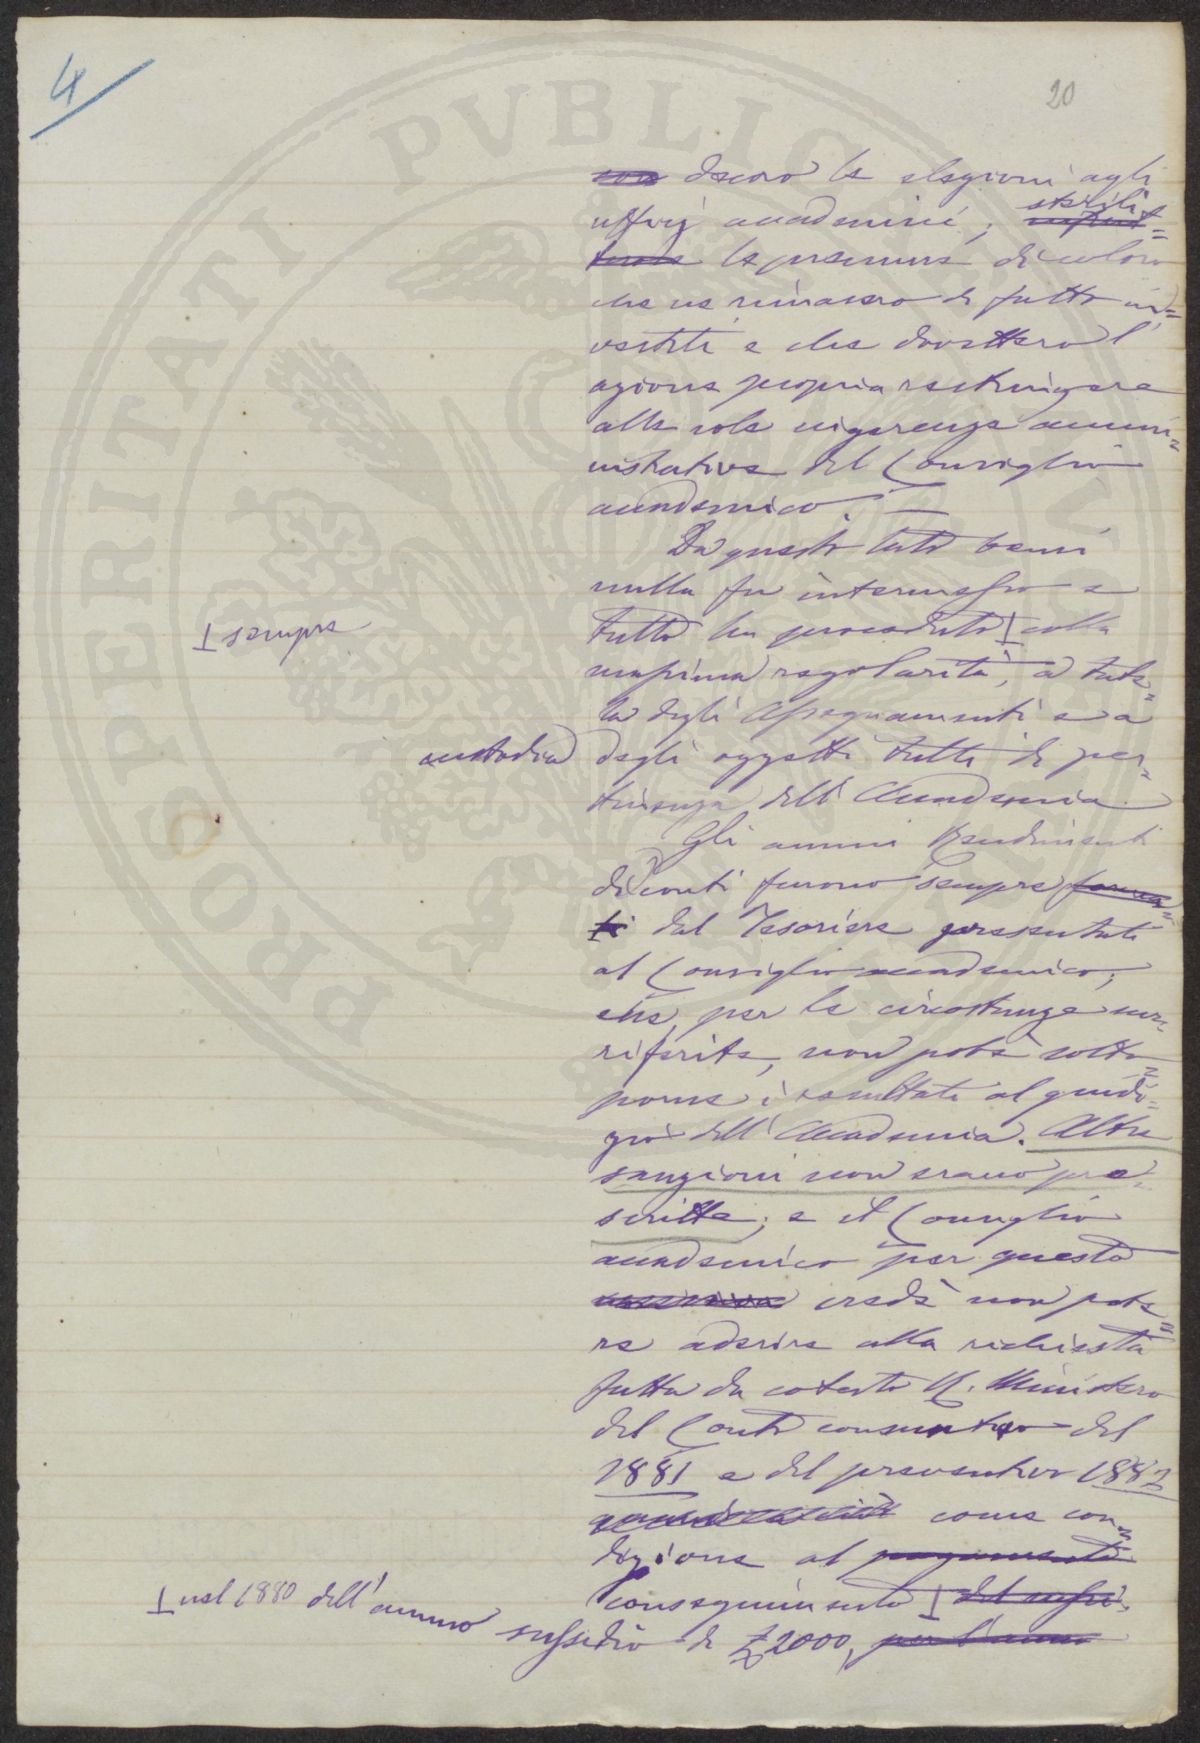 4
20
decoro le elezioni agli
uffizj accademici; sterili
le premure di coloro
che ne rimasero di fatto in=
vestiti e che dovettero l'
azione propria restringere
alla sola ingerenza ammi=
nistrativa del Consiglio
accademico. —
Da questo lato però
nulla fu intermesso e
tutto ha proceduto ⊥ colla
⊥ sempre
massima regolarità, a tute=
la degli Assegnamenti e a
custodia degli oggetti tutti di per=
tinenza dell'Accademia.
Gli annui Rendimenti
di conti furono sempre forma=
ti dal Tesoriere presentati
al Consiglio accademico;
che, per le circostanze sur=
riferite, non potè sotto=
porne i resultati al giudi=
zio dell'Accademia. Altre
sanzioni non erano pre=
scritte; e il Consiglio
accademico per questo
credè non pote=
re aderire alla richiesta
fatta da cotesto R. Ministero
del Conto consuntivo del
1881 e del preventivo 1882
come con=
dizione al pagamento
conseguimento ⊥ del sussi=
⊥ nel 1880 dell'annuo sussidio di £2000, per l'anno